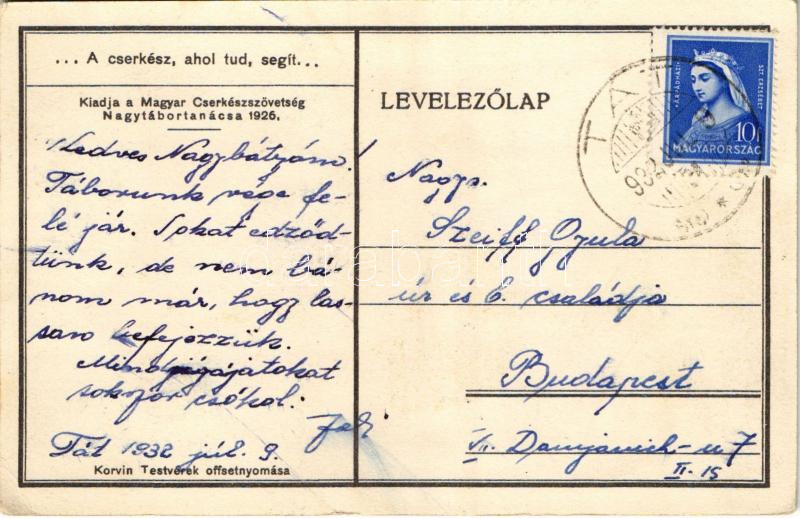 ... A cserkész, ahol tud, segít...
Kiadja a Magyar Cserkészszövetség
Nagytábortanácsa 1926.
Kedves Nagybátyám!
Táborunk vége fe-
lé jár. Sokat edződ-
tünk, de nem bá-
nom már, hogy las-
san befejezzük.
Mindnyájatokat
sokszor csókol:
Tát 1932 júl. 9.
Korvin Testvérek offsetnyomása
LEVELEZŐLAP
ÁRPÁDHÁZI
SZT. ERZSÉBET
10f
MAGYARORSZÁG
TÁT
932
Nags.
Szeiff Gyula
úr és b. családja
Budapest
VII. Damjanich-u 7
II-15
darabanth